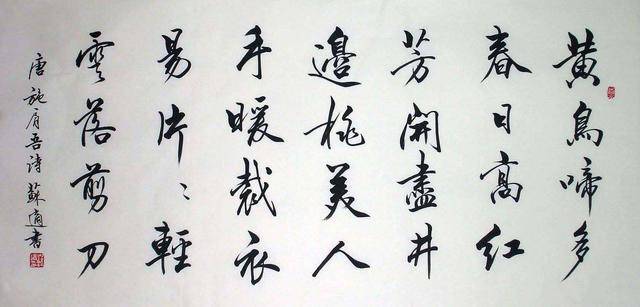 黃鳥啼多
春日高紅
芳開盡井
邊桃美人
手暖裁衣
易片〻輕
雲落剪刀
唐施肩吾詩蘇適書